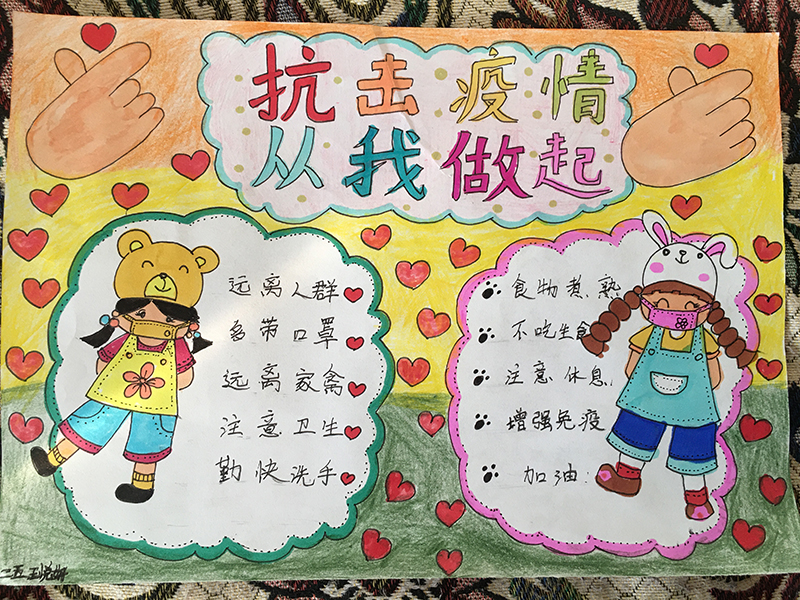 抗击疫情
从我做起
远离人群
多带口罩
远离家禽
注意卫生
勤快洗手
食物煮熟
不吃生食
注意休息
增强免疫
加油
二五 王悦妍